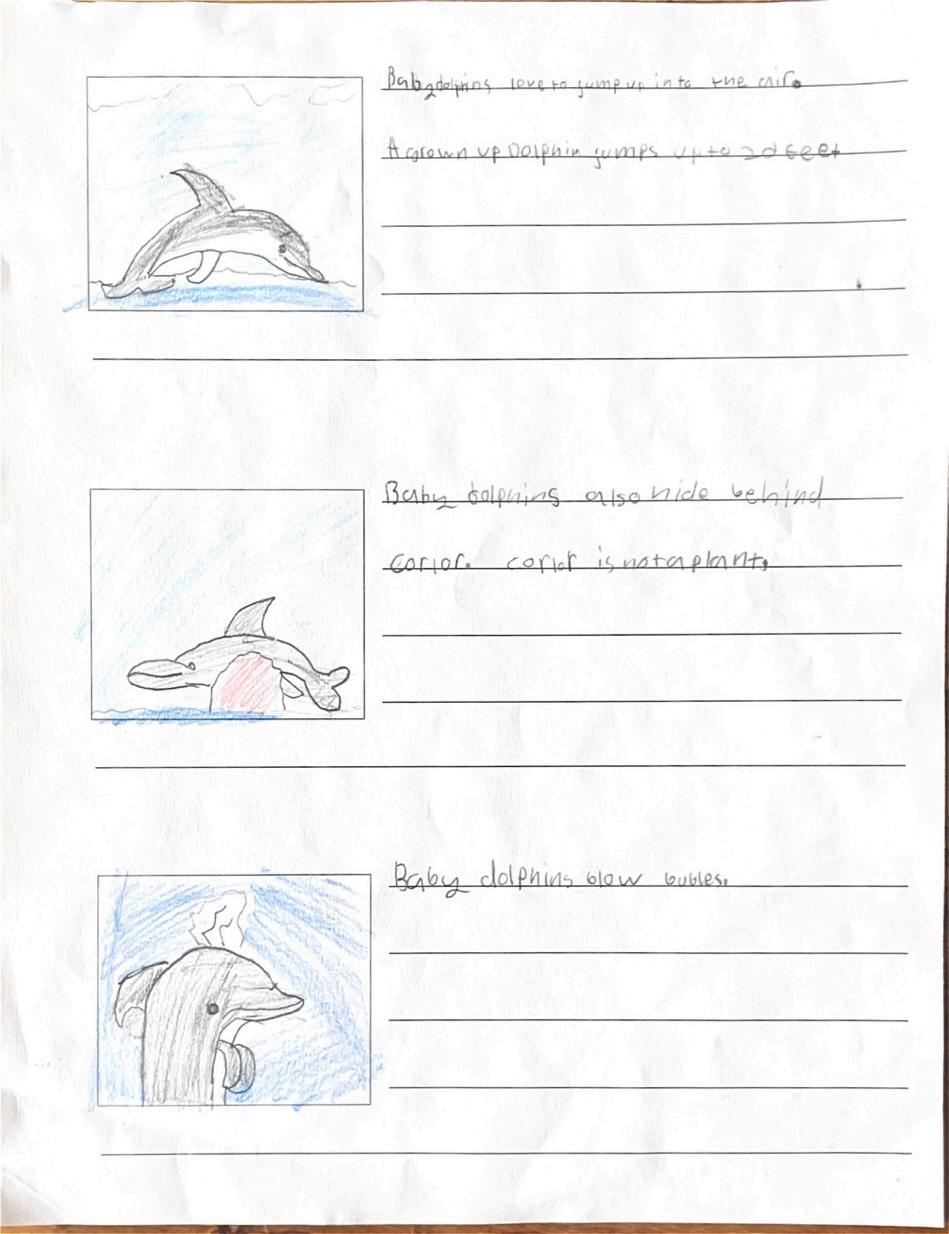 Baby dolphins love to jump up into the air.
A grown up Dolphin jumps up to 20 feet
Baby dolphins also hide behind
corlor. corlor is not a plant.
Baby dolphins blow bubles.